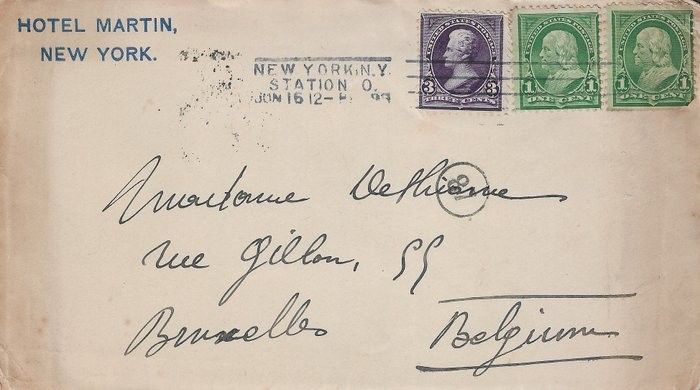 HOTEL MARTIN,
NEW YORK.
NEW YORK, N.Y.
STATION O.
JUN 16 12-P 99
UNITED STATES POSTAGE
3 3
THREE CENTS
UNITED STATES POSTAGE
1 1
ONE CENT
UNITED STATES POSTAGE
1 1
ONE CENT
81
Madame
rue Gillon, 55
Bruxelles Belgium